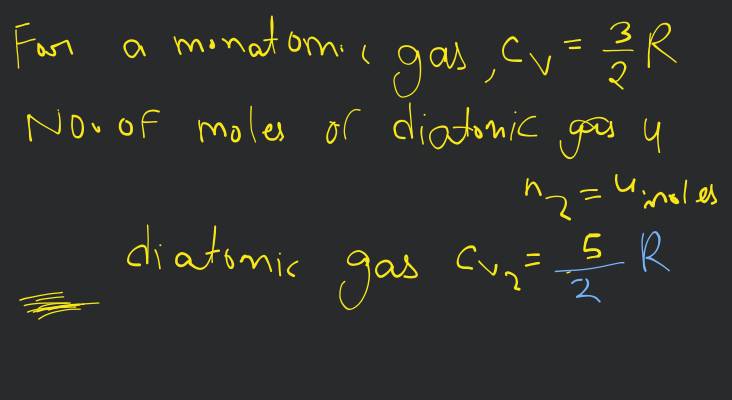 For a monatomic gas, Cv = 3/2 R
NO. OF moles of diatonic gas 4
n2 = 4 moles
diatomic gas Cv2 = 5/2 R